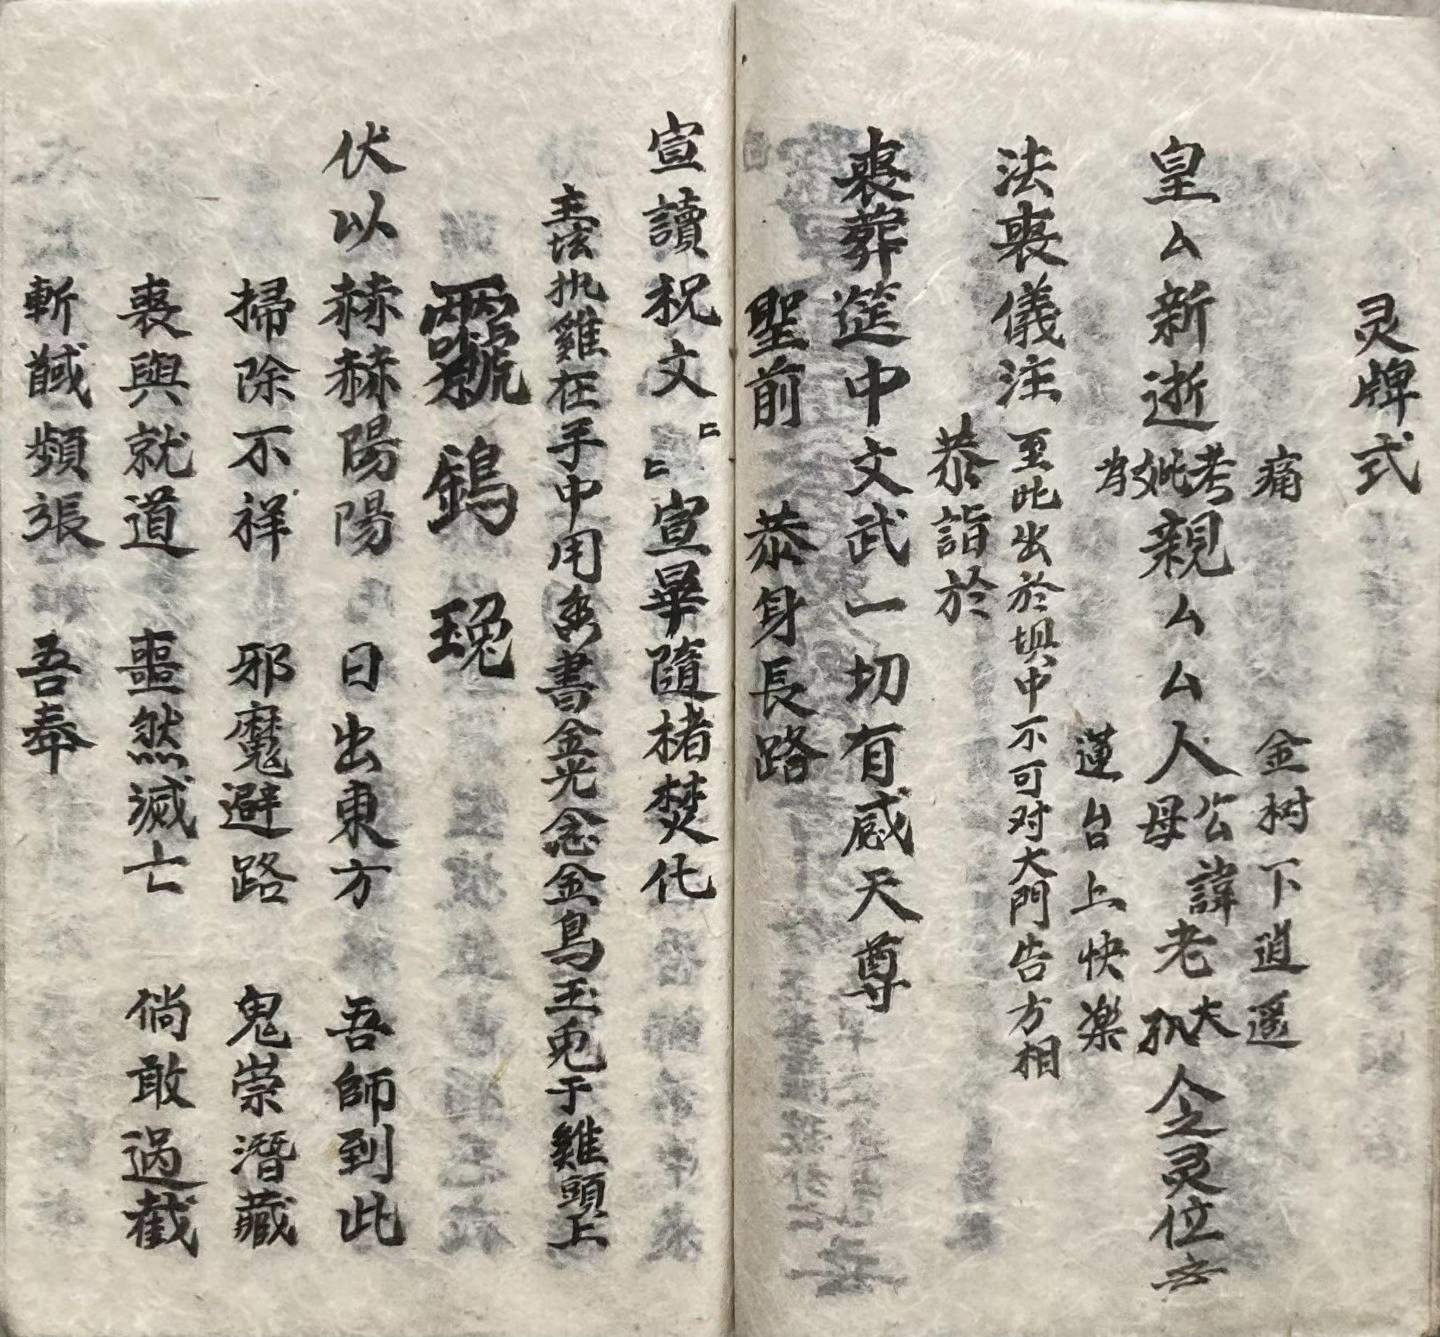 灵牌式
痛 金树下逍遥
皇厶新逝考妣故親厶厶人公母諱老大孺人之灵位
蓮台上快楽
法喪儀注 至此出於埧中不可对大門告方相
恭詣於
喪葬筵中文武一切有感天尊
聖前 恭身長路
宣讀祝文〻〻宣畢隨楮焚化
主坛执雞在手中用 書金光念金烏玉兎于雞頭上
鎢
伏以赫赫陽陽 日出東方 吾師到此
掃除不祥 邪魔避路 鬼祟潛藏
喪與就道 噩然滅亡 倘敢過截
斬馘頻張 吾奉